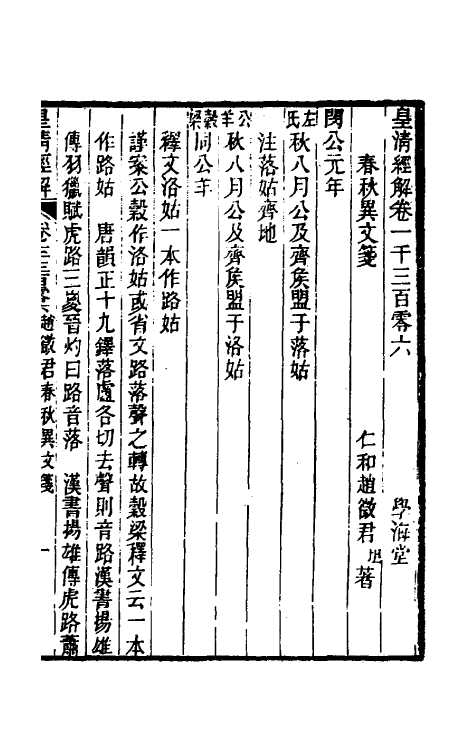 皇清經解卷一千三百零六 學海堂
春秋異文箋 仁和趙徵君坦著
閔公元年
左氏秋八月公及齊矦盟于落姑
注落姑齊地
公羊秋八月公及齊矦盟于洛姑
穀梁同公羊
釋文洛姑一本作路姑
謹案公穀作洛姑或省文路落聲之轉故穀梁釋文云一本
作路姑 唐韻正十九鐸落盧各切去聲則音路漢書揚雄
傳羽獵賦虎路三嵏晉灼曰路音落 漢書揚雄傳虎路蕭
皇清經解 趙徵君春秋異文箋 一